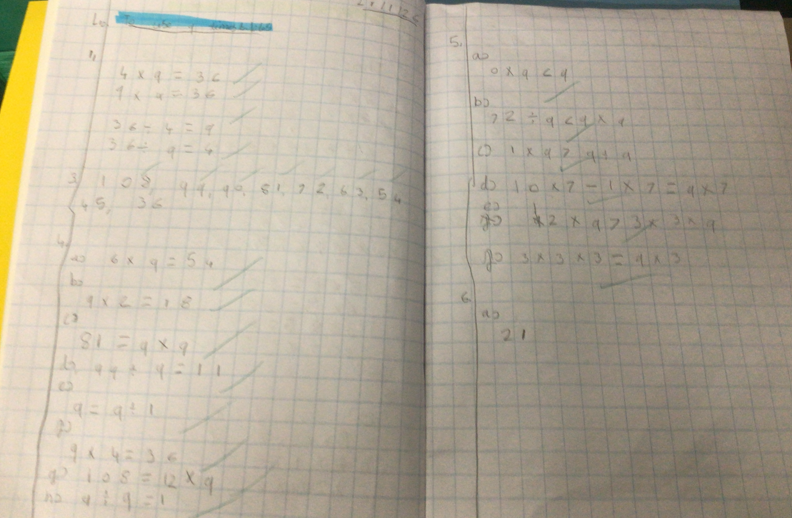 1.
4 x 9 = 36
9 x 4 = 36
36 ÷ 4 = 9
36 ÷ 9 = 4
3. 108, 99, 90, 81, 72, 63, 54
45, 36
4.
a) 6 x 9 = 54
b)
9 x 2 = 18
c)
81 = 9 x 9
d) 99 ÷ 9 = 11
e)
9 = 9 ÷ 1
f)
9 x 4 = 36
g) 108 = 12 x 9
h) 9 ÷ 9 = 1
5.
a)
0 x 9 < 9
b)
72 ÷ 9 < 9 x 9
c) 1 x 9 > 9 ÷ 9
d) 10 x 7 - 1 x 7 = 9 x 7
e)
12 x 9 > 3 x 3 x 9
f) 3 x 3 x 3 = 9 x 3
6.
a)
21